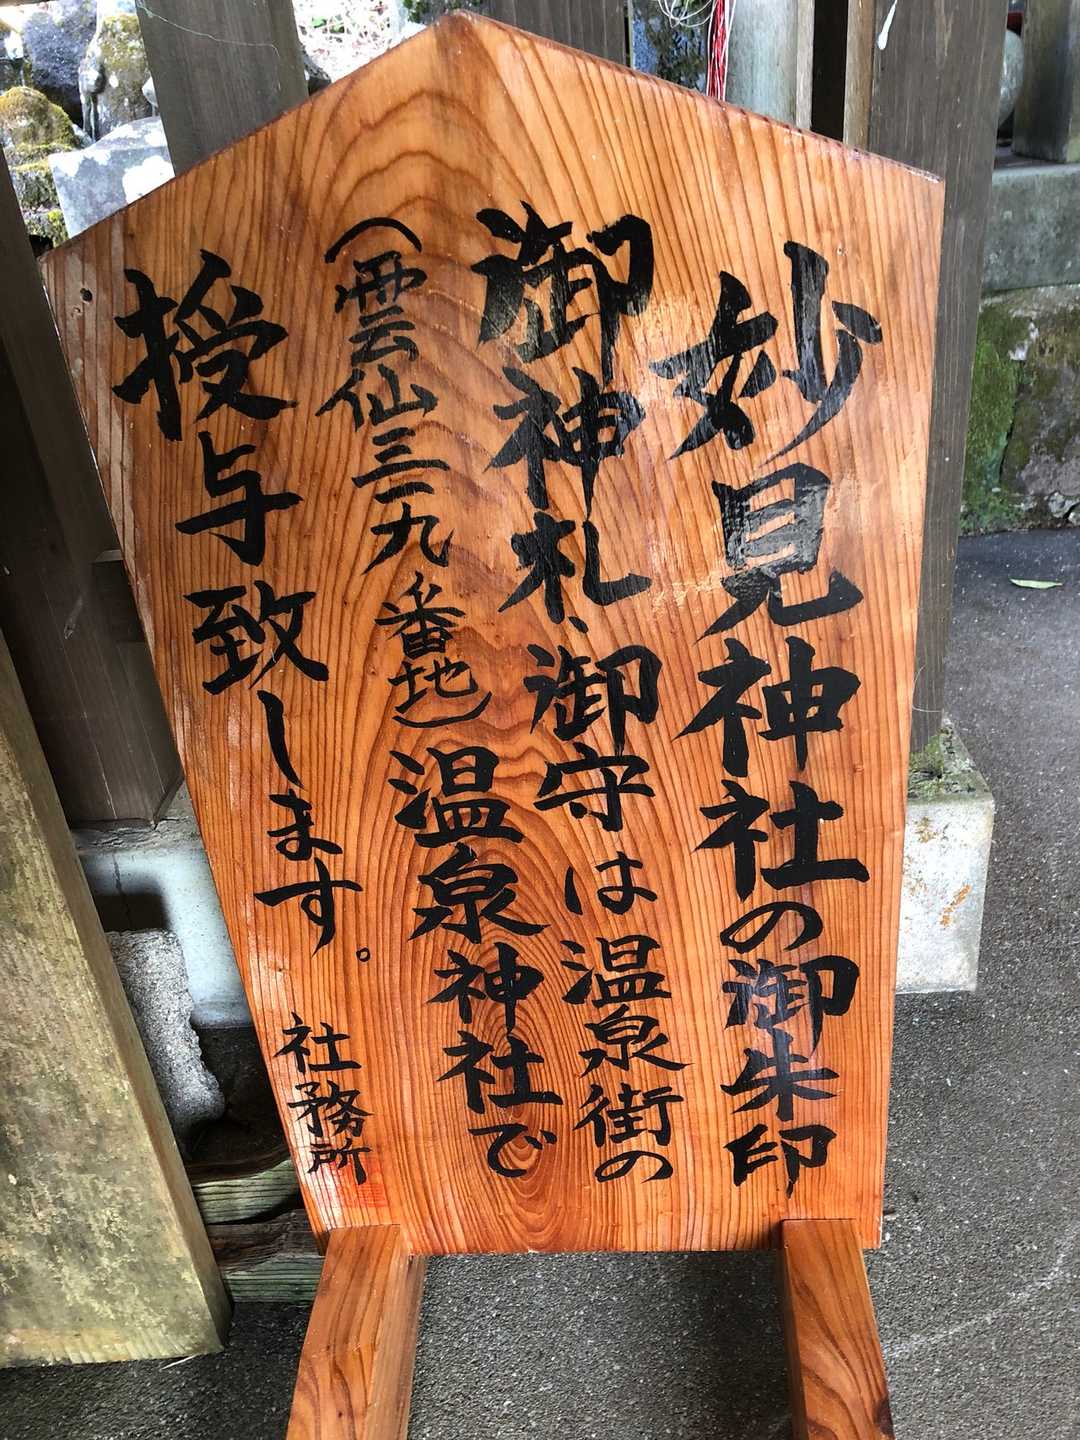 妙見神社の御朱印
御神札、御守は温泉街の
（雲仙三一九番地）温泉神社で
授与致します。
社務所